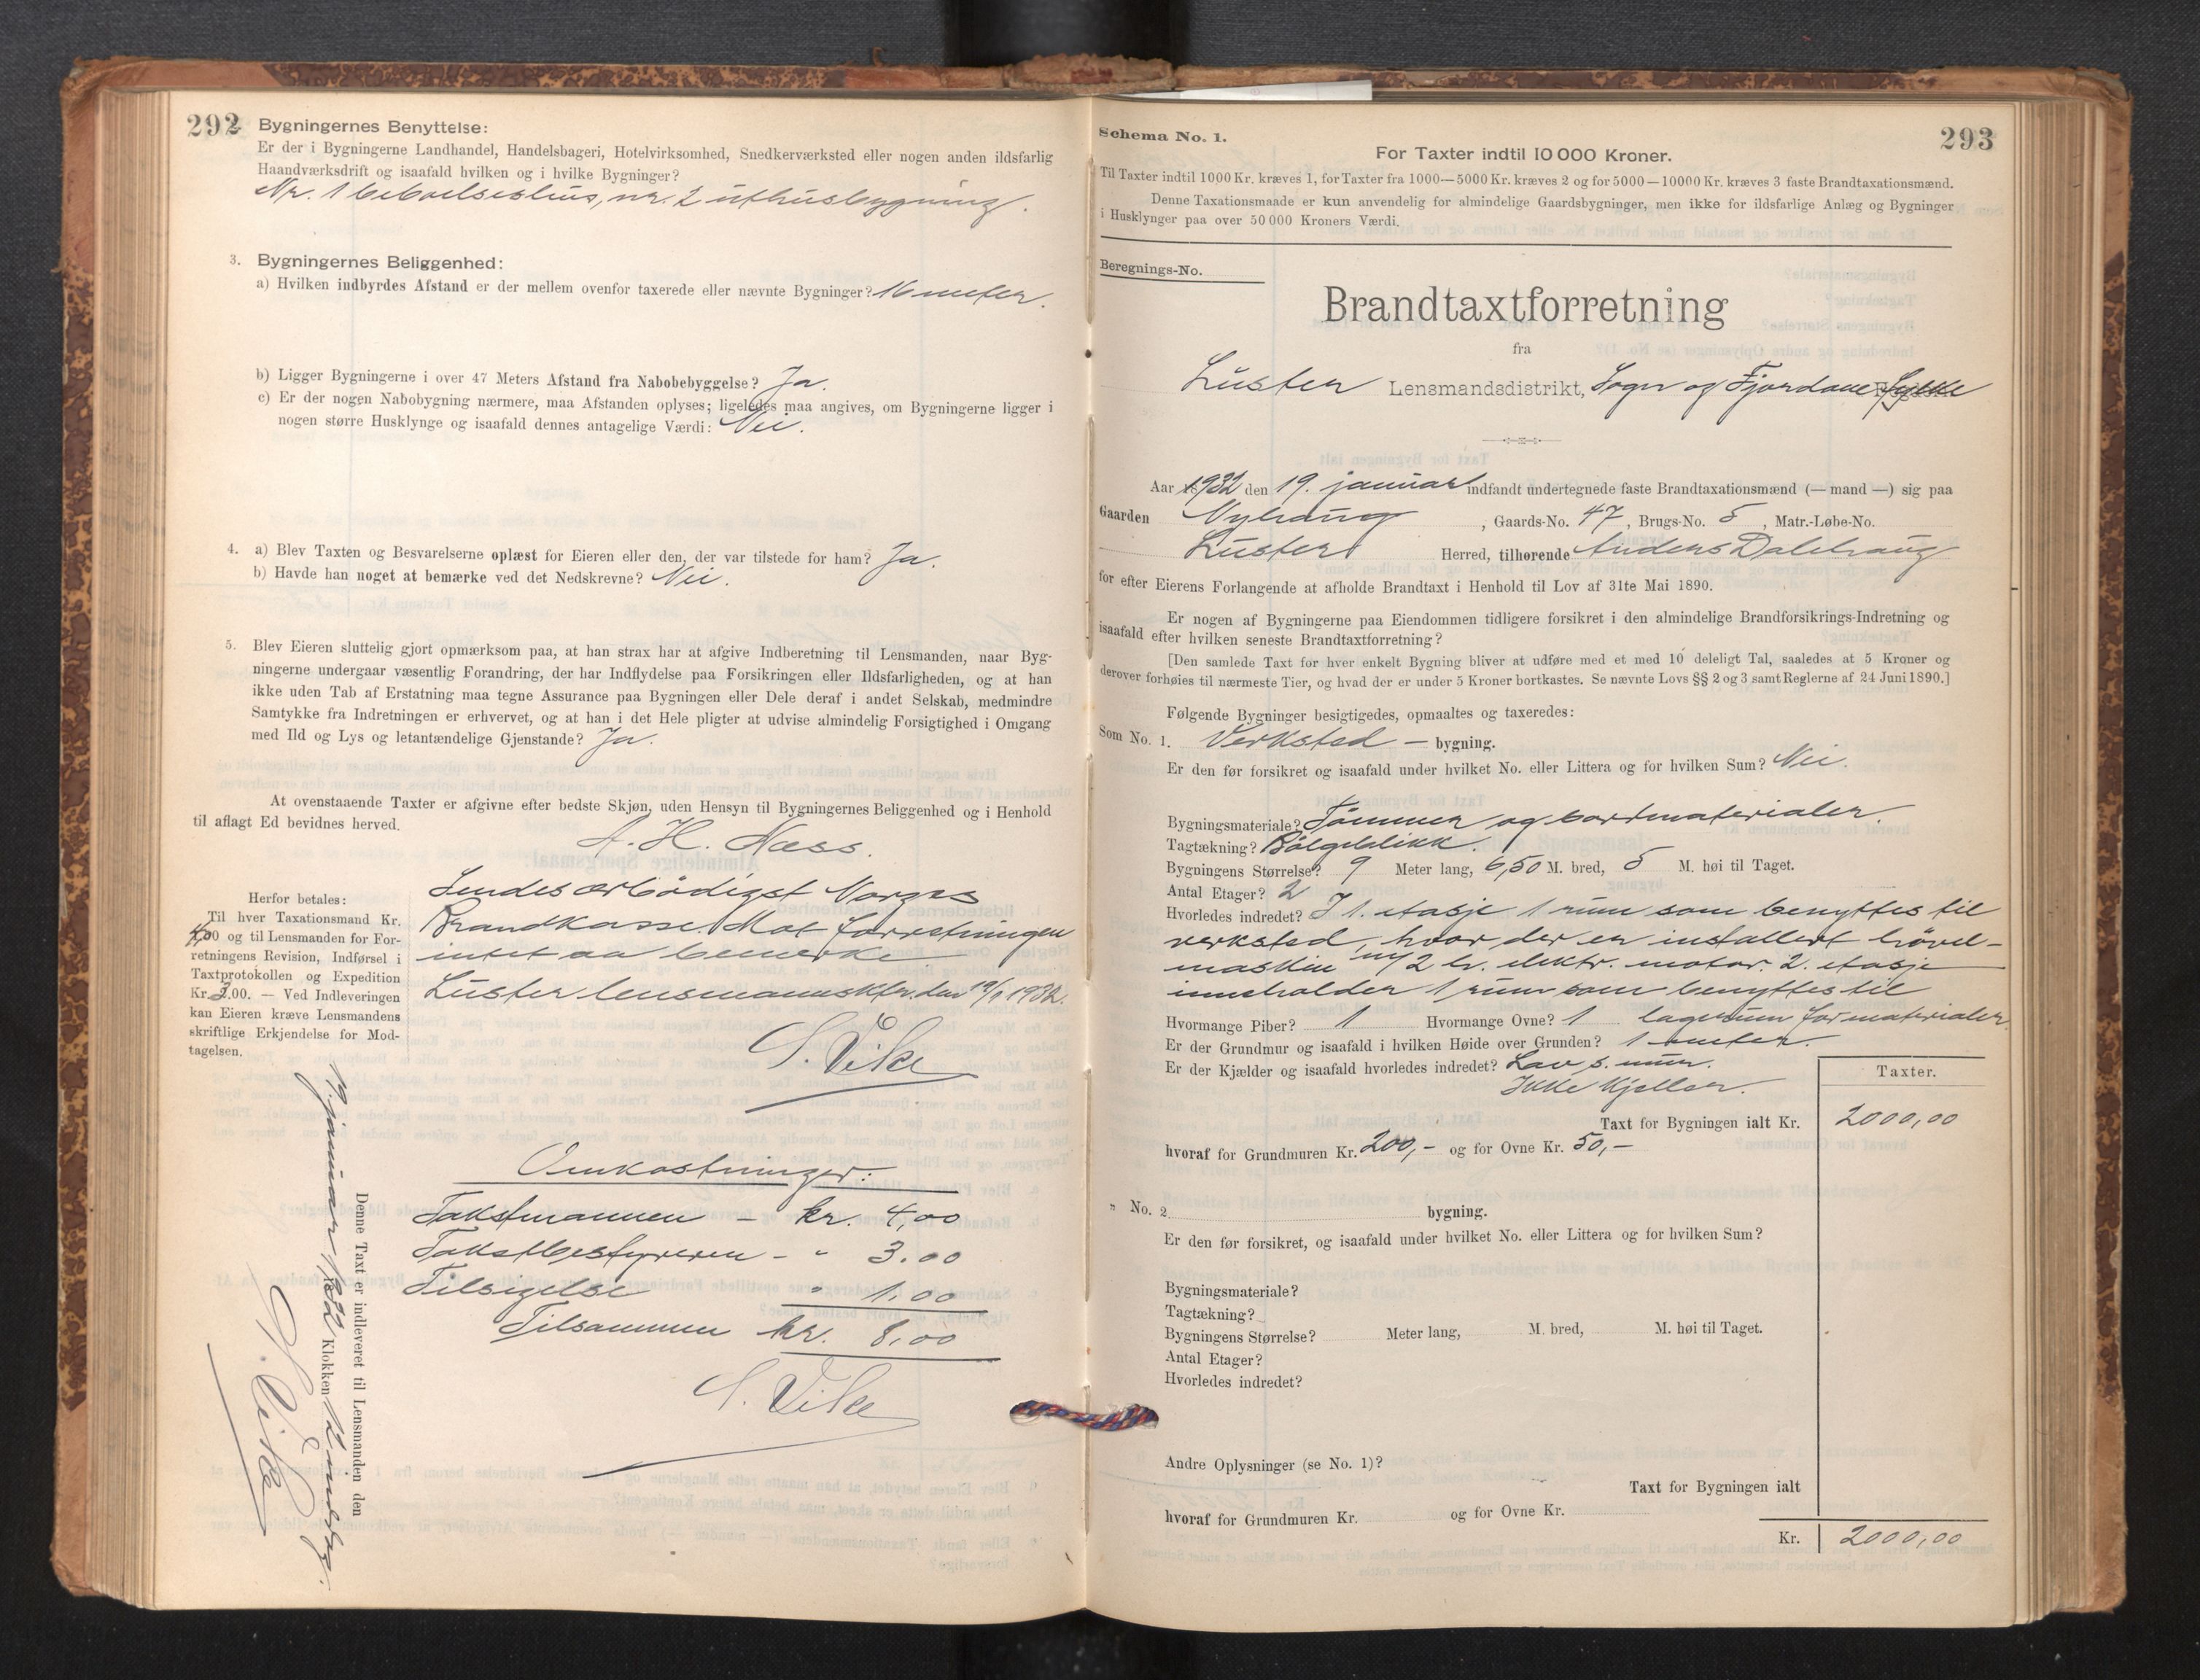 292
Bygningernes Benyttelse:
Er der i Bygningerne Landhandel, Handelsbageri, Hotelvirksomhed, Snedkerværksted eller nogen anden ildsfarlig
Haandværksdrift og isaafald hvilken og i hvilke Bygninger?
Nr. 1 beboelseshus, nr. 2 uthusbygning.
3. Bygningernes Beliggenhed:
a) Hvilken indbyrdes Afstand er der mellem ovenfor taxerede eller nævnte Bygninger? 16 meter.
b) Ligger Bygningerne i over 47 Meters Afstand fra Nabobebyggelse? Ja.
c) Er der nogen Nabobygning nærmere, maa Afstanden oplyses; ligeledes maa angives, om Bygningerne ligger i
nogen større Husklynge og isaafald dennes antagelige Værdi: Nei.
4. a) Blev Taxten og Besvarelserne oplæst for Eieren eller den, der var tilstede for ham? Ja.
b) Havde han noget at bemærke ved det Nedskrevne? Nei.
5. Blev Eieren sluttelig gjort opmærksom paa, at han strax har at afgive Indberetning til Lensmanden, naar Byg-
ningerne undergaar væsentlig Forandring, der har Indflydelse paa Forsikringen eller Ildsfarligheden, og at han
ikke uden Tab af Erstatning maa tegne Assurance paa Bygningen eller Dele deraf i andet Selskab, medmindre
Samtykke fra Indretningen er erhvervet, og at han i det Hele pligter at udvise almindelig Forsigtighed i Omgang
med Ild og Lys og letantændelige Gjenstande? Ja.
At ovenstaaende Taxter er afgivne efter bedste Skjøn, uden Hensyn til Bygningernes Beliggenhed og i Henhold
til aflagt Ed bevidnes herved.
A. H. Næss.
Herfor betales:
Til hver Taxationsmand Kr.
4,00 og til Lensmanden for For-
retningens Revision, Indførsel i
Taxtprotokollen og Expedition
Kr. 3.00. — Ved Indleveringen
kan Eieren kræve Lensmandens
skriftlige Erkjendelse for Mod-
tagelsen.
Sendes ærbødigst Norges
Brandkasse. Mot forretningen
intet aa bemerke
Luster lensmannsktr. den 19/1 1932.
S. Vike
Omkostninger:
Takstmannen - kr. 4,00
Takstbestyreren - " 3.00
Tilsigelse " 1.00
Tilsammen kr. 8,00
S. Vike
Denne Taxt er indleveret til Lensmanden den
19. januar 1932 Klokken 12 middag.
S. Vike
293
Schema No. 1.
For Taxter indtil 10 000 Kroner.
Til Taxter indtil 1000 Kr. kræves 1, for Taxter fra 1000—5000 Kr. kræves 2 og for 5000—10000 Kr. kræves 3 faste Brandtaxationsmænd.
Denne Taxationsmaade er kun anvendelig for almindelige Gaardsbygninger, men ikke for ildsfarlige Anlæg og Bygninger
i Husklynger paa over 50 000 Kroners Værdi.
Beregnings-No.
Brandtaxtforretning
fra
Luster Lensmandsdistrikt, Sogn og Fjordane Fylke
Aar 1932 den 19. januar indfandt undertegnede faste Brandtaxationsmænd (— mand —) sig paa
Gaarden Nyhaug, Gaards-No. 47, Brugs-No. 5, Matr.-Løbe-No.
Luster Herred, tilhørende Anders Dalehaug
for efter Eierens Forlangende at afholde Brandtaxt i Henhold til Lov af 31te Mai 1890.
Er nogen af Bygningerne paa Eiendommen tidligere forsikret i den almindelige Brandforsikrings-Indretning og
isaafald efter hvilken seneste Brandtaxtforretning?
[Den samlede Taxt for hver enkelt Bygning bliver at udføre med et med 10 deleligt Tal, saaledes at 5 Kroner og
derover forhøies til nærmeste Tier, og hvad der er under 5 Kroner bortkastes. Se nævnte Lovs §§ 2 og 3 samt Reglerne af 24 Juni 1890.]
Følgende Bygninger besigtigedes, opmaaltes og taxeredes:
Som No. 1. Verksted — bygning.
Er den før forsikret og isaafald under hvilket No. eller Littera og for hvilken Sum? Nei.
Bygningsmateriale? Tømmer og bordmaterialer.
Tagtækning? Bølgeblikk.
Bygningens Størrelse? 9 Meter lang, 6,50 M. bred, 5 M. høi til Taget.
Antal Etager? 2
Hvorledes indredet? I 1. etasje 1 rum som benyttes til
verksted, hvor der er installert høvel-
maskin m/ 2 h. elektr. motor. 2. etasje
inneholder 1 rum som benyttes til
Hvormange Piber? 1 Hvormange Ovne? 1 lagerum for materialer
Er der Grundmur og isaafald i hvilken Høide over Grunden? 1 meter.
Er der Kjælder og isaafald hvorledes indredet? Lav s. mur.
Ikke kjeller.
Taxter.
Taxt for Bygningen ialt Kr. 2000,00
hvoraf for Grundmuren Kr. 200,- og for Ovne Kr. 50,-
" No. 2 bygning.
Er den før forsikret, og isaafald under hvilket No. eller Littera og for hvilken Sum?
Bygningsmateriale?
Tagtækning?
Bygningens Størrelse? Meter lang, M. bred, M. høi til Taget.
Antal Etager?
Hvorledes indredet?
Andre Oplysninger (se No. 1)?
Taxt for Bygningen ialt
hvoraf for Grundmuren Kr. og for Ovne Kr.
Kr. 2000,00